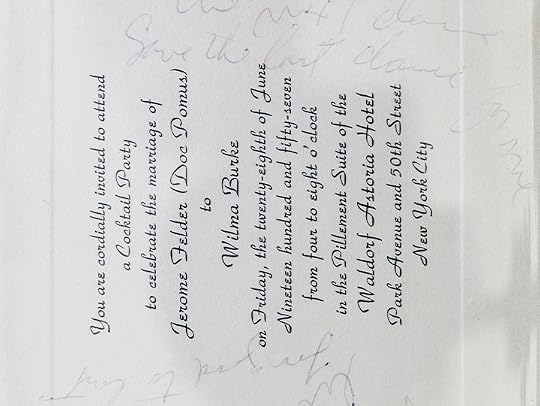 Save the last dance
for me
You are cordially invited to attend
a Cocktail Party
to celebrate the marriage of
Jerome Felder (Doc Pomus)
to
Wilma Burke
on Friday, the twenty-eighth of June
Nineteen hundred and fifty-seven
from four to eight o'clock
in the Pillement Suite of the
Waldorf Astoria Hotel
Park Avenue and 50th Street
New York City